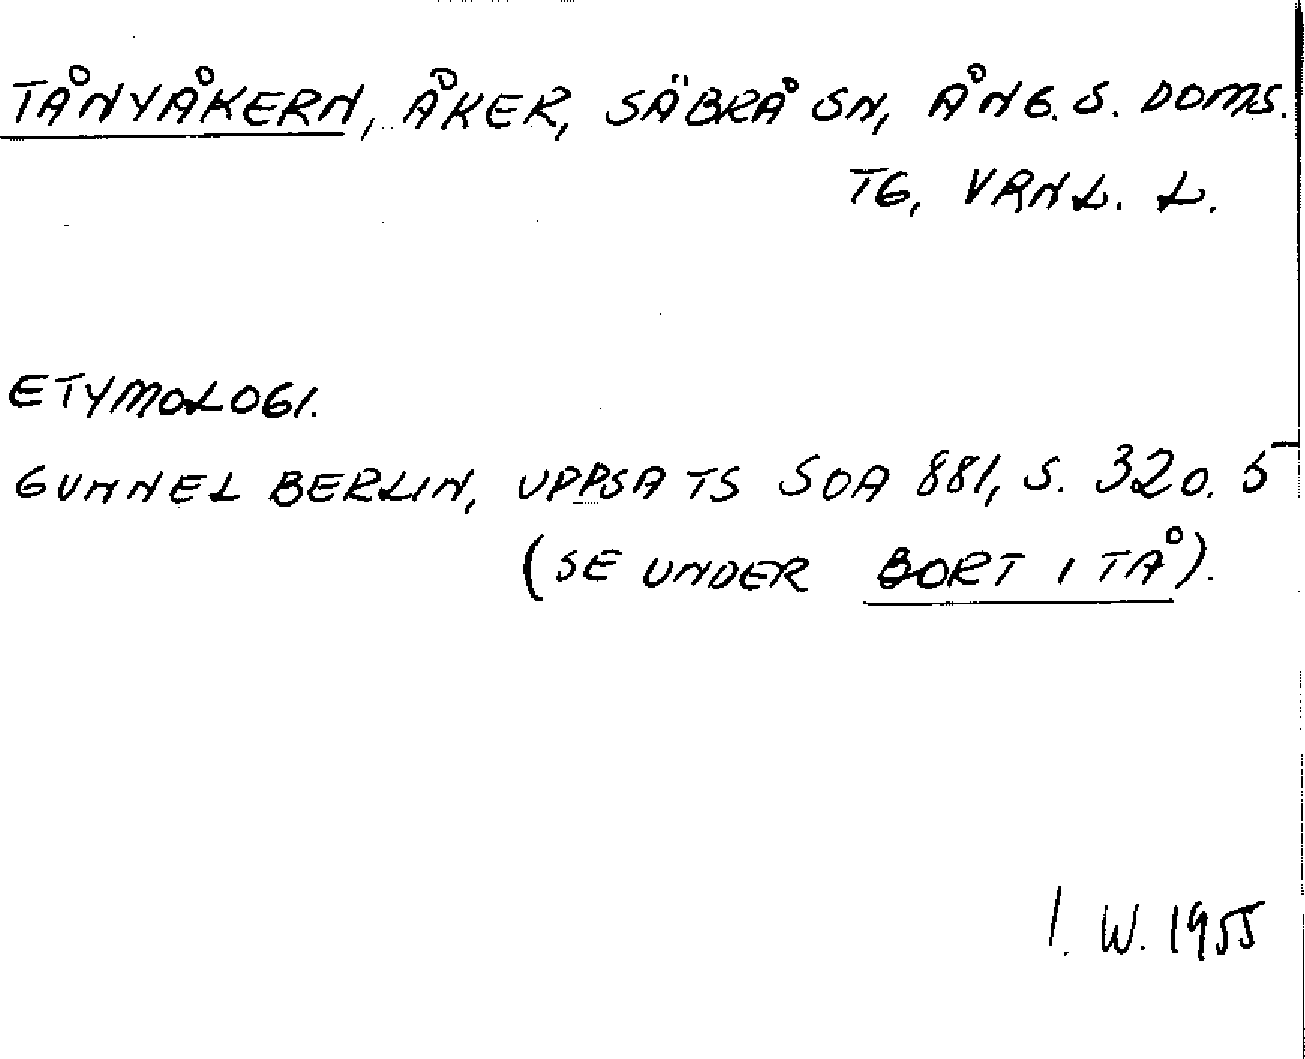 TÅNYÅKERN, ÅKER, SÄBRÅ SN, ÅNG. S. DOMS.
TG, VRNL. L.
ETYMOLOGI.
GUNNEL BERLIN, UPPSATS SOA 881, S. 320. 5
(SE UNDER BORT I TÅ).
I. W. 1955